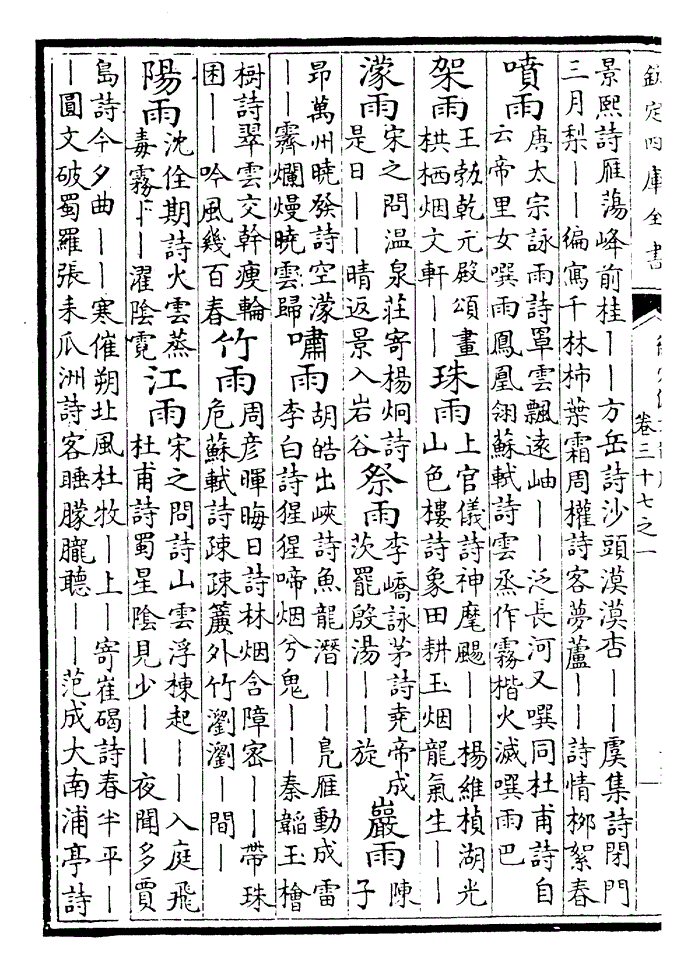 欽定四庫全書
卷三十七之一
景熙詩雁蕩峰前桂——方岳詩沙頭漠漠杏——虞集詩閉門
三月梨——偏寫千林柿葉霜周權詩客夢蘆——詩情栁絮春
噴雨
唐太宗詠雨詩罩雲飄遠岫——泛長河又噀同杜甫詩自
云帝里女噀雨鳳凰翎蘇軾詩雲烝作霧楷火滅噀雨巴
架雨
王勃乾元殿頌畫
栱栖烟文軒——
珠雨
上官儀詩神麾颺——楊維楨湖光
山色樓詩象田耕玉烟龍氣生——
濛雨
宋之問温泉莊寄楊炯詩
是日——晴返景入岩谷
祭雨
李嶠詠茅詩堯帝成
茨罷殷湯——旋
巖雨
陳
子
昂萬州曉發詩空濛
——霽爛熳曉雲歸
嘯雨
胡皓出峽詩魚龍潛——鳬雁動成雷
李白詩猩猩啼烟兮鬼——秦韜玉檜
樹詩翠雲交幹瘦輪
囷——吟風幾百春
竹雨
周彦暉晦日詩林烟含障密——帶珠
危蘇軾詩疎疎簾外竹瀏瀏—間—
陽雨
沈佺期詩火雲蒸
毒霧——濯陰霓
江雨
宋之問詩山雲浮棟起——入庭飛
杜甫詩蜀星陰見少——夜聞多賈
島詩今夕曲——寒催朔北風杜牧—上—寄崔碣詩春半平—
—圓文破蜀羅張耒瓜洲詩客睡朦朧聽——范成大南浦亭詩